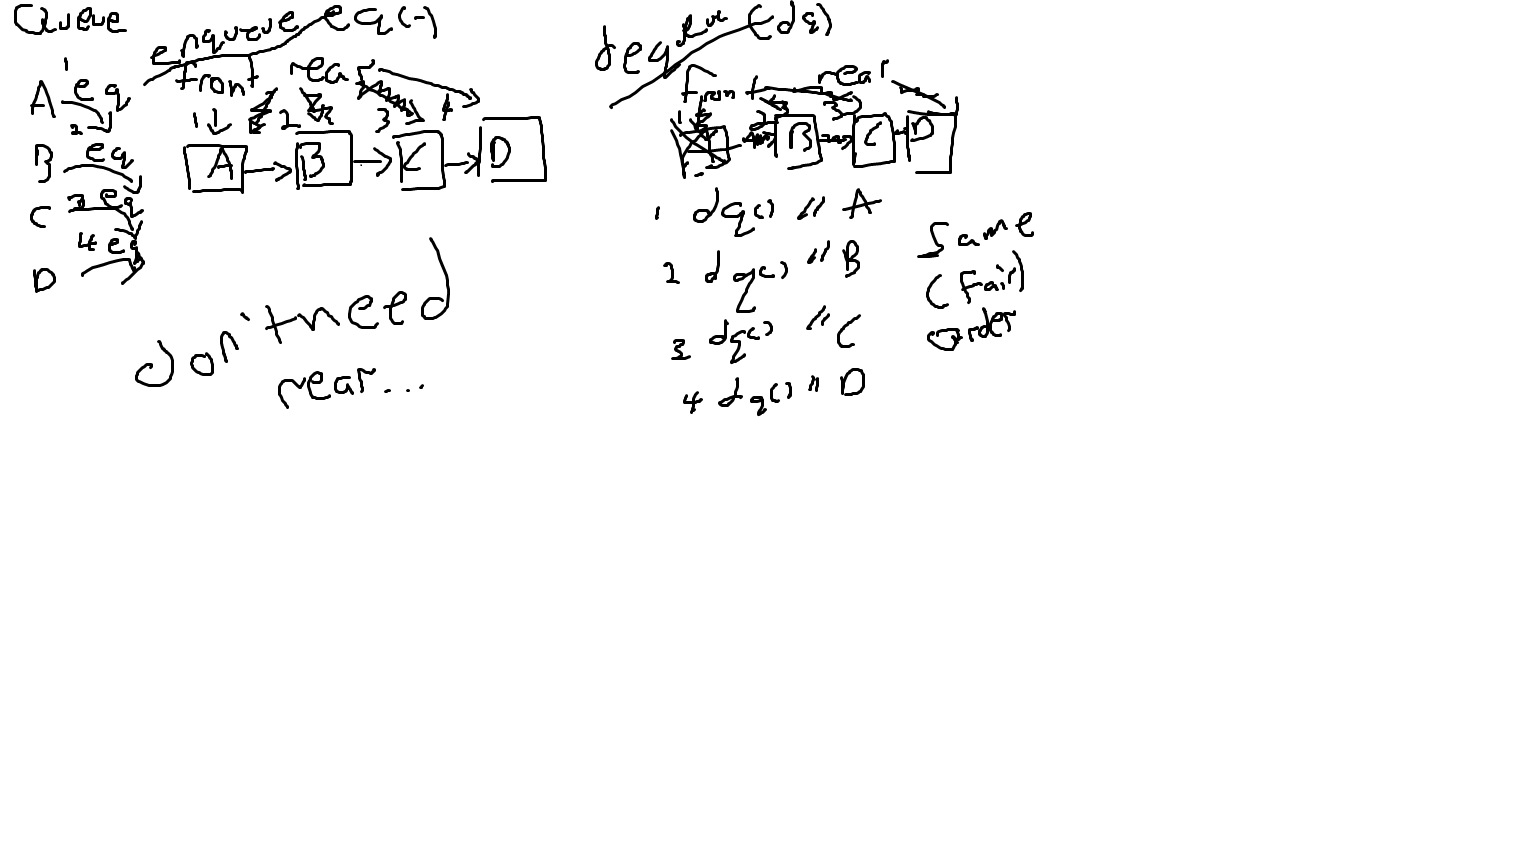 Queue
enqueue eq(-)
front rear
1 eq
A
2
eq
B
3 eq
C
4 eq
D
1 2 3 4
A B C D
don't need
rear...
dequeue (dq)
front rear
1 2 3
B C D
1 dq() // A
2 dq() // B
3 dq() // C
4 dq() // D
Same
(fair)
order